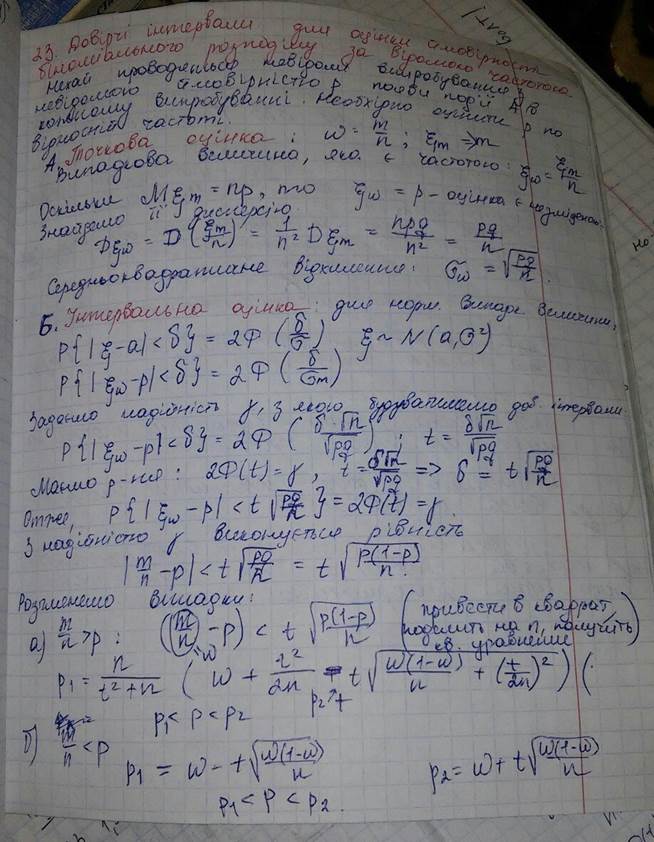 23. Довірчі інтервали для оцінки ймовірності
біноміального розподілу за відомою частотою.
Нехай проводяться незалежні випробування з
невідомою ймовірністю p появи події A в
кожному випробуванні. Необхідно оцінити p по
відносній частоті.
А. Точкова оцінка: ω = m/n; ξm ⇒ m
Випадкова величина, яка є частотою: ξω = ξm/n
Оскільки Mξm = np, то ξω = p - оцінка є незміщеною.
Знайдемо її дисперсію
Dξω = D(ξm/n) = 1/n² Dξm = npq/n² = pq/n
Середньоквадратичне відхилення: σω = √(pq/n).
Б. Інтервальна оцінка: для норм. випадк величини,
P{|ξ-a|<δ} = 2Φ(δ/σ) ξ~N(a,σ²)
P{|ξω-p|<δ} = 2Φ(δ/σm)
Задамо надійність γ, з якою будуватимемо дов. інтервали
P{|ξω-p|<δ} = 2Φ(δ·√n/√pq); t = δ√n/√pq
Маємо р-ння: 2Φ(t)=γ, t = δ√n/√pq => δ = t√(pq/n)
Отже, P{|ξω-p|<t√(pq/n)} = 2Φ(t) = γ.
З надійністю γ виконується рівність
|m/n - p| < t√(pq/n) = t√(p(1-p)/n).
Розглянемо випадки:
а) m/n > p: (m/n - p) < t√(p(1-p)/n) (привести в квадрат,
ω поделить на n, получить
кв. уравнение)
p1 = n/(t²+n) (ω + t²/2n - t√(ω(1-ω)/n + (t/2n)²))
p2 +
p1 < p < p2
б) m/n < p
p1 = ω - t√(ω(1-ω)/n) p2 = ω + t√(ω(1-ω)/n)
p1 < p < p2.